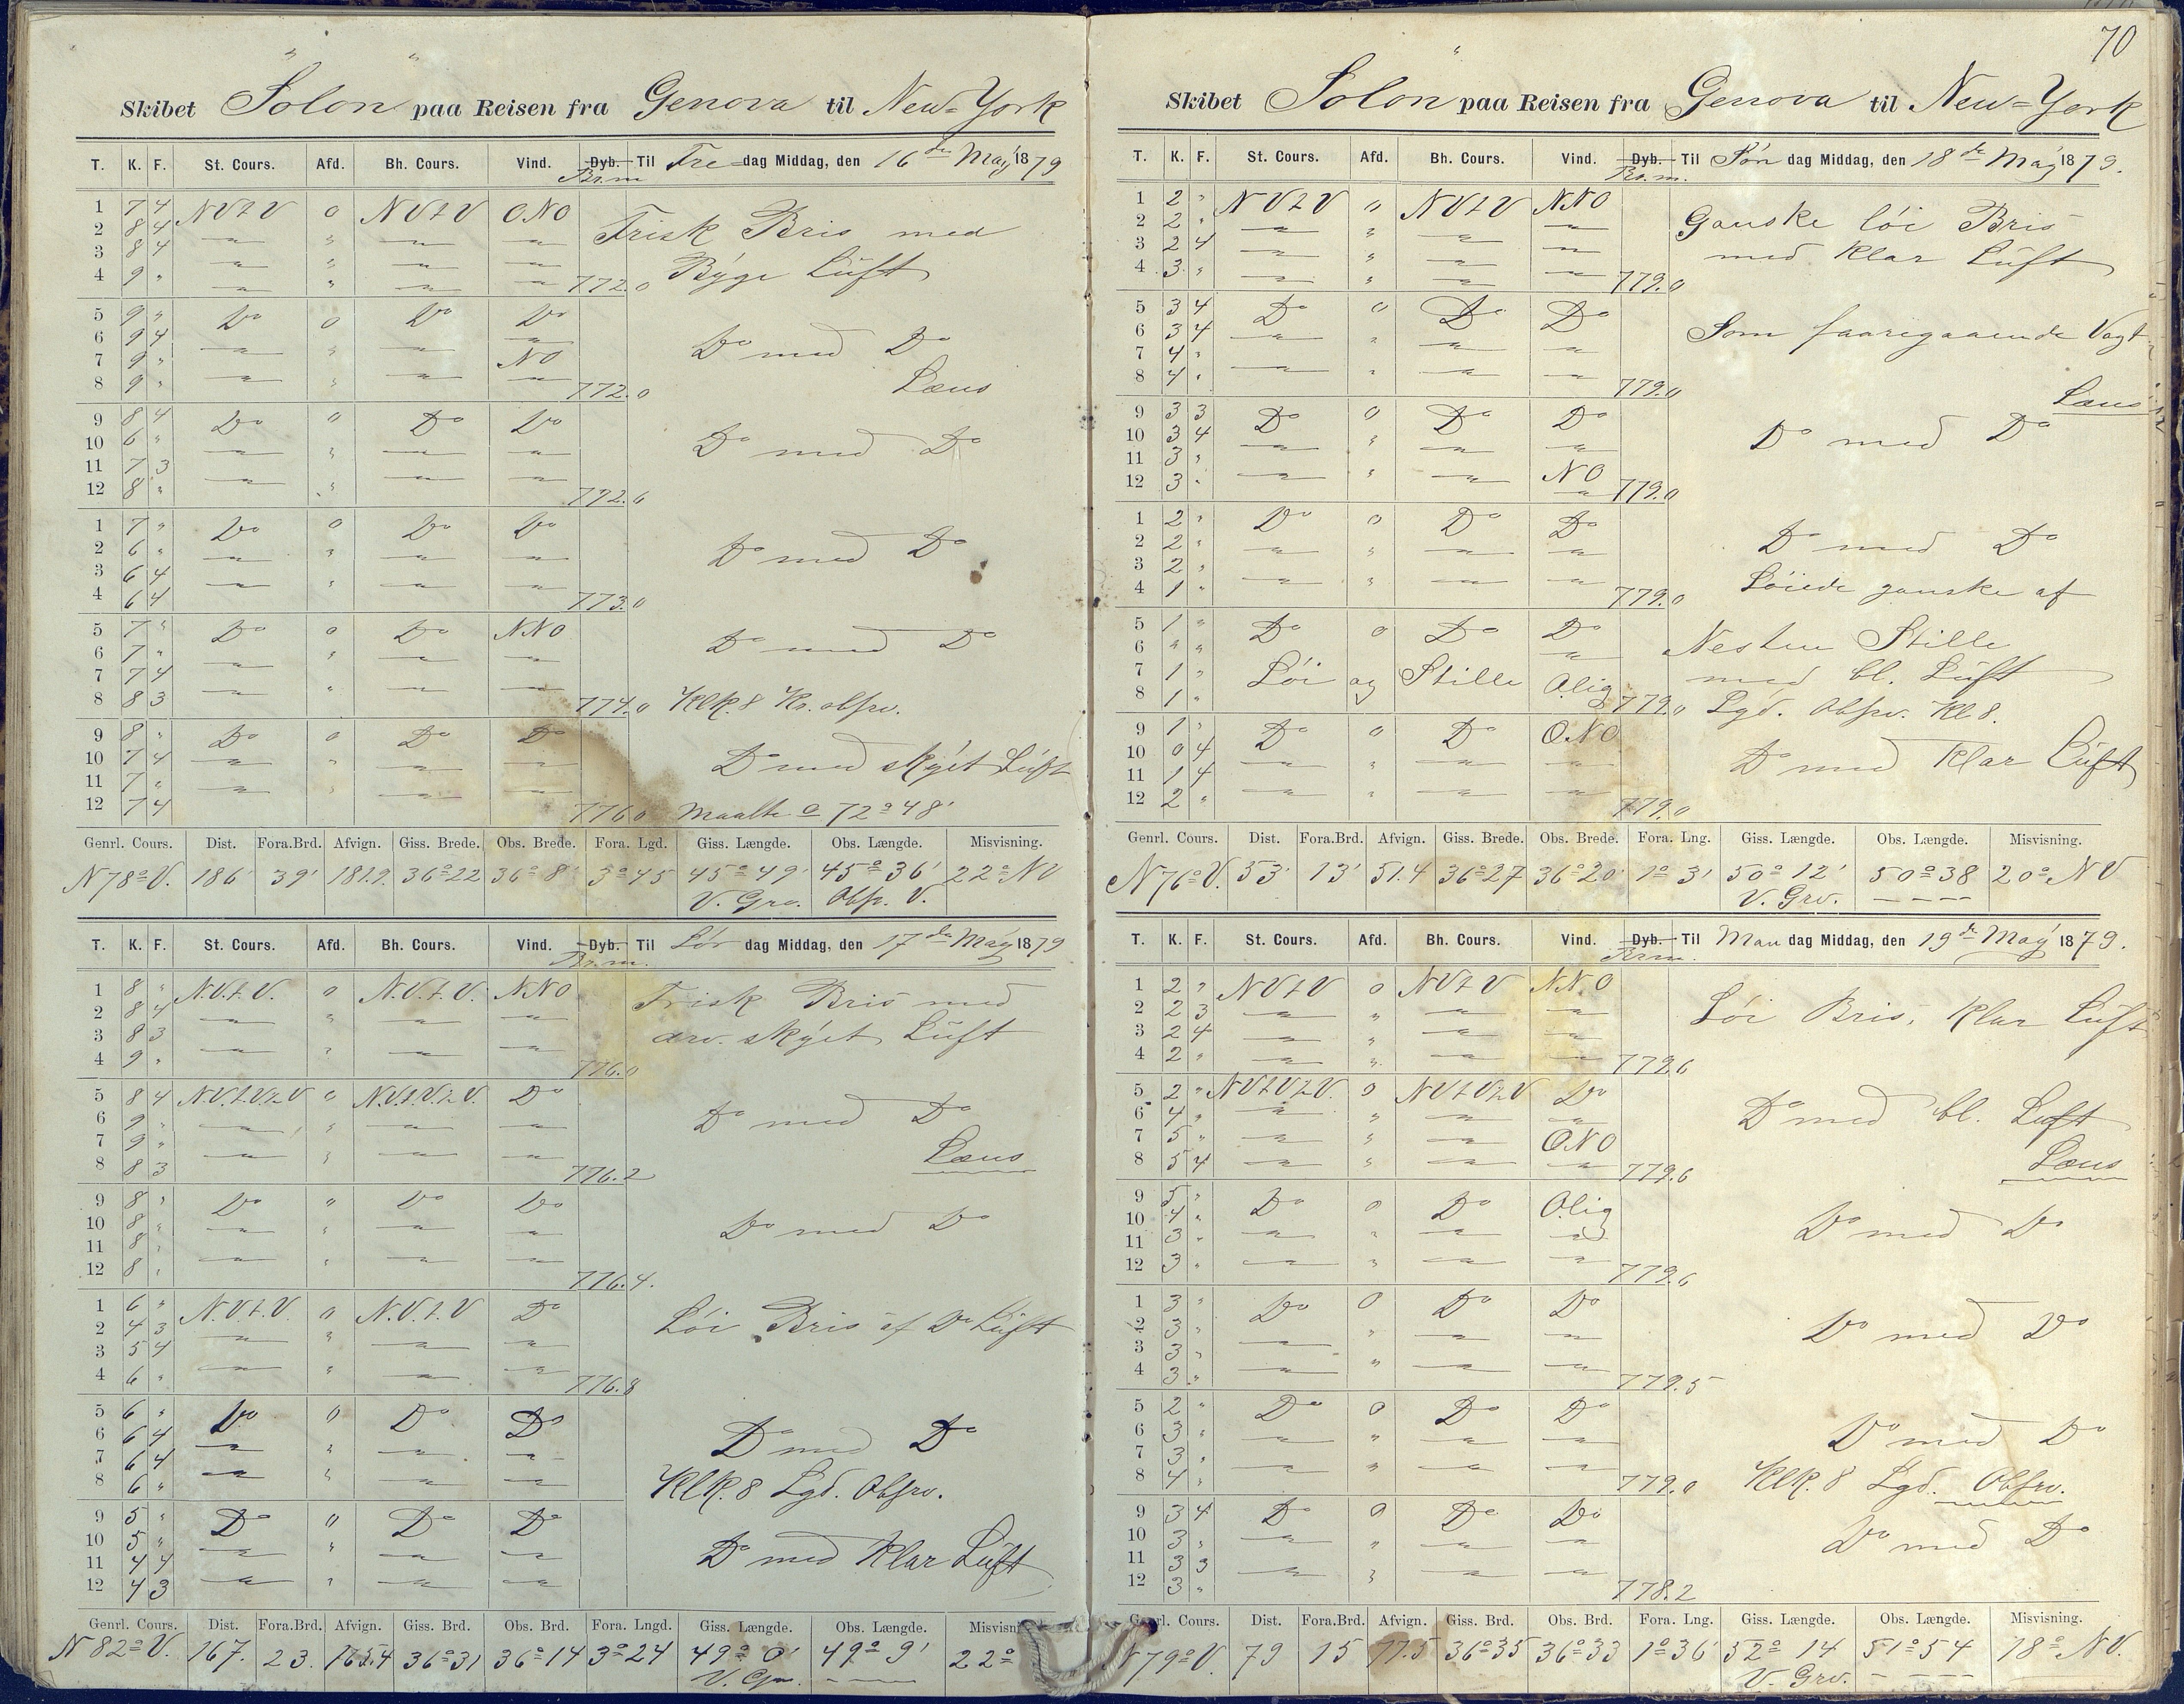 Skibet "Solon" paa Reisen fra Genova til New=York
T. K. F. St. Cours. Afd. Bh. Cours. Vind. Dyb. Til Fre dag Middag, den 16de Maý 1879
Br.m
1 7 4 NVtV 0 NVtV ONO
2 8 4 Frisk Bris med
3 8 4
4 9 " Býge Lúft 772.0
5 9 " Do 0 Do Do
6 9 4 Do med Do
7 9 " NO
8 9 " 772.0 Læns
9 8 4 Do " Do Do
10 6 " Do med Do
11 7 3
12 8 " 772.6
1 7 " Do 0 Do Do
2 6 " Do med Do
3 6 4
4 6 4 773.0
5 7 " Do 0 Do NNO
6 7 " Do med Do
7 7 4
8 8 3 774.0 Klk. 8 Kr. obsrv.
9 8 " Do 0 Do Do
10 7 4 Do med skýet Lúft
11 7 "
12 7 4 776.0 Maalte 72° 48'
Genrl. Cours. Dist. Fora.Brd. Afvign. Giss. Brede. Obs. Brede. Fora. Lgd. Giss. Længde. Obs. Længde. Misvisning.
N 78° V. 186' 39' 181.9 36° 22 36° 8' 3° 45 45° 49' 45° 36' 22° NV
V. Grv. Obsr. V.
T. K. F. St. Cours. Afd. Bh. Cours. Vind. Dyb. Til Lør dag Middag, den 17de Maý 1879
Br.m.
1 8 " N.V.t.V. 0 N.V.t.V. NNO Frisk Bris med
2 8 4
3 8 3 skýet Lúft
4 9 " 776.0
5 8 4 N.V.t.V.½V 0 N.V.t.V.½V. Do
6 9 " Do med Do
7 9 " Læns
8 8 3 776.2
9 8 " Do " Do Do
10 8 " Do med Do
11 8 "
12 8 " 776.4.
1 6 " N.V.t.V. 0 N.V.t.V Do
2 4 3 Löi Bris af Do Lúft
3 5 4
4 6 " 776.8
5 6 " Do 0 Do Do
6 6 4 Do med Do
7 6 4
8 6 " Klk. 8 Lgd. Obsrv.
9 5 " Do " Do Do
10 5 "
11 4 4 Do med Klar Lúft
12 4 3
Genrl. Cours. Dist. Fora.Brd. Afvign. Giss. Brd. Obs. Brd. Fora. Lngd. Giss. Længde. Obs. Længde.
N 82° V. 167. 23. 165.4 36° 31 36° 14 3° 24 49° 0' 49° 9' 22°
70
Skibet Solon" paa Reisen fra Genova til New=York
T. K. F. St. Cours. Afd. Bh. Cours. Vind. Dyb. Til Søn dag Middag, den 18de Maý 1879.
Br.m.
1 2 " NVtV 0 NVtV NNO
2 2 " Ganske löi Bris
3 2 4 med Klar Lúft
4 3 " 779.0
5 3 4 Do 0 Do Do
6 3 4 Som faaregaaende Vagt
7 4 "
8 4 " 779.0 Læns
9 3 3 Do 0 Do Do
10 3 4 Do med Do
11 3 "
12 3 " NO 779.0
1 2 " Do 0 Do Do
2 2 " Do med Do
3 2 "
4 1 " 779.0 Löiede ganske af
5 1 " Do 0 Do Do
6 " " Nesten Stille
7 1 " Löi og Stille Olig med bl. Lúft
8 1 " 779.0 Lgd. Obsrv. Kl 8.
9 1 " Do 0 Do ONO
10 0 4 Do med Klar Lúft
11 1 4
12 2 " 779.0
Genrl. Cours. Dist. Fora.Brd. Afvign. Giss. Brede. Obs. Brede. Fora. Lng. Giss. Længde. Obs. Længde. Misvisning.
N 76° V. 53' 13' 51.4 36° 27 36° 20' 1° 3' 50° 12' 50° 38 20° NV
V. Grv.
T. K. F. St. Cours. Afd. Bh. Cours. Vind. Dyb. Til Man dag Middag, den 19de Maý 1879.
Br.m.
1 2 " NVtV 0 NVtV NNO
2 2 3 Löi Bris, Klar Lúft
3 2 4
4 2 " 779.6
5 2 " NVtV½V. 0 NVtV½V Do
6 4 " Do med bl. Luft
7 5 " ONO Læns
8 5 4 779.6
9 5 " Do 0 Do Olig
10 4 " Do med Do
11 3 "
12 3 " 779.6
1 3 " Do 0 Do Do
2 3 " Do med Do
3 3 "
4 3 " 779.5
5 2 " Do 0 Do Do
6 3 " Do med Do
7 3 "
8 4 " 779.0 Klk. 8 Lgd. Obsrv.
9 3 4 Do 0 Do Do
10 3 " Do med Do
11 3 3
12 3 " 778.2
Genrl. Cours. Dist. Fora.Brd. Afvign. Giss. Brd. Obs. Brd. Fora. Lng. Giss. Længde. Obs. Længde. Misvisning.
N 79° V. 79 15 77.5 36° 35 36° 33 1° 36' 52° 14 51° 54 18° NV.
V. Grv.